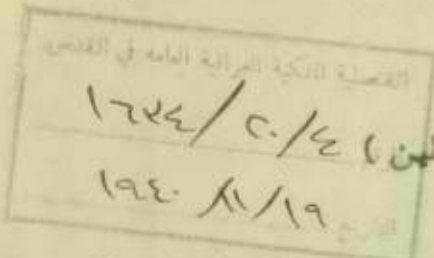 القنصلية الملكية العراقية العامة في القدس
٤/٢٠/١٦٣٤
التاريخ ١٩/١١/١٩٤٠